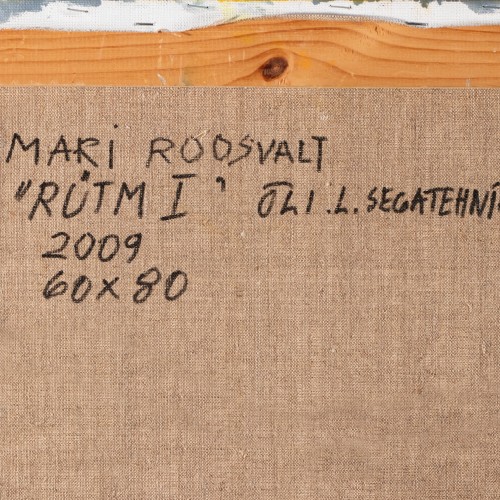 MARI ROOSVALT
"RÜTM I" ÕLI .L. SEGATEHNI
2009
60 x 80